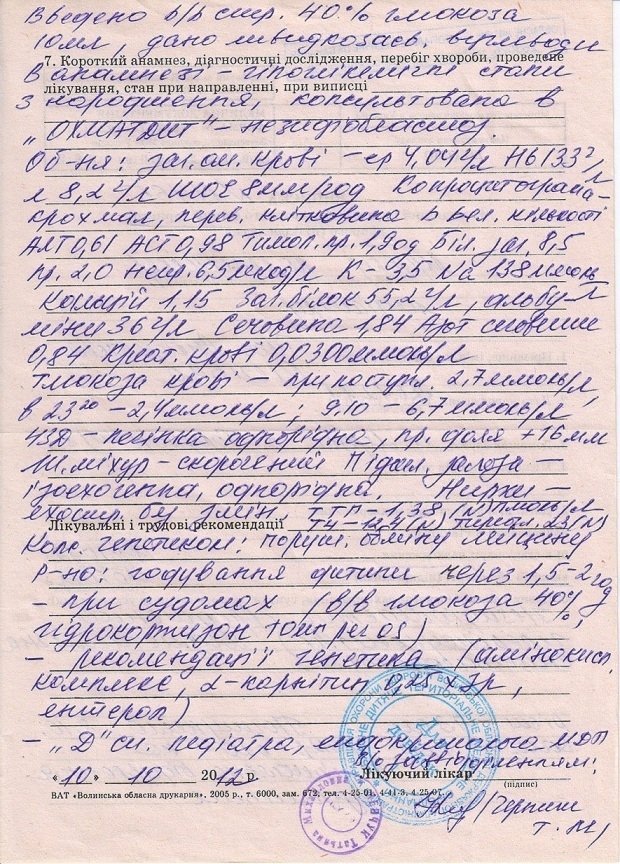 Введено в/в стр. 40% глюкоза
10 мл, дано швидкозасв. вуглеводи
7. Короткий анамнез, діагностичні дослідження, перебіг хвороби, проведене
В анамнезі – гіпоглікемічні стани
лікування, стан при направленні, при виписці
з народження, консультована в
„ОХМАТДИТ" –
Об-ня: заг. ан. крові – ер 4,04 г/л Нб 133 г/л
л 8,2 г/л ШОЕ 8 мм/год Копроцитограма –
крохмал, перев. клітковина в вел. кількості
АлТ 0,61 АСТ 0,98 Тимол. пр. 1,9 од Біл. заг. 8,5
пр. 2,0 непр. 6,5 мкмод/л К – 3,5 Na 138 ммоль/л
Кальцій 1,15 Заг. білок 55,2 г/л, альбу-
міни 36 г/л Сечовина 1,84 Азот сечовини
0,84 Креат. крові 0,0300 ммоль/л
Глюкоза крові – при поступл. 2,7 ммоль/л,
в 23 20 – 2,4 ммоль/л; 9.10 – 6,7 ммоль/л
УЗД – печінка однорідна, пр. доля +16 мм
Ж. міхур – скорочений Підшл. залоза –
ізоехогенна, однорідна. Нирки –
ехостр. без змін. ТТГ – 1,38 (N)
Лікувальні і трудові рекомендації Т4 – 12,4 (N) 23 (N)
Конс. генетиком: поруш. обміну
Р-но: годування дитини через 1,5-2 год
– при судомах (в/в глюкоза 40%,
гідрокортизон per os)
– рекомендації генетика (амінокисл.
комплекс, L-карнітин 0,25 х 3 р,
ентерол)
– „Д" сп. педіатра, ендокринолога МДП
За зав. відділенням:
«10» 10 2012 р. Лікуючий лікар
(підпис)
ВАТ «Волинська обласна друкарня». 2005 р., т. 6000, зам. 672, тел. 4-25-01, 4-41-3, 4-25-07.
Т. М.)